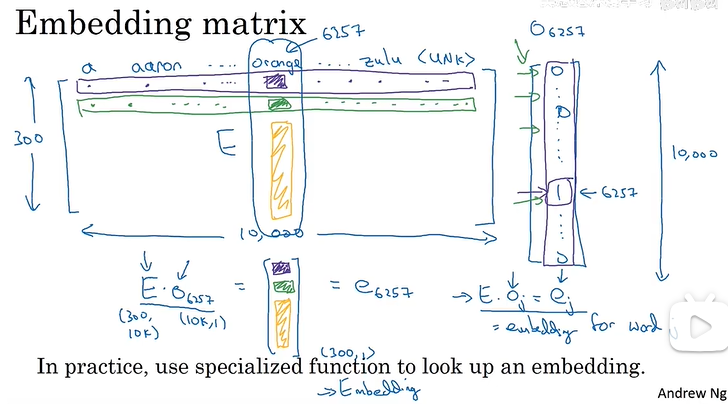 Embedding matrix
6257
O6257
a aaron ..... orange ..... zulu <UNK>
0
0
300
E
10,000
1
6257
10,000
0
E · O6257 = [ ] = e6257
(300, 10K) (10K,1)
(300,1)
→ E · Oj = ej
= embedding for word
In practice, use specialized function to look up an embedding.
→ Embedding
Andrew Ng